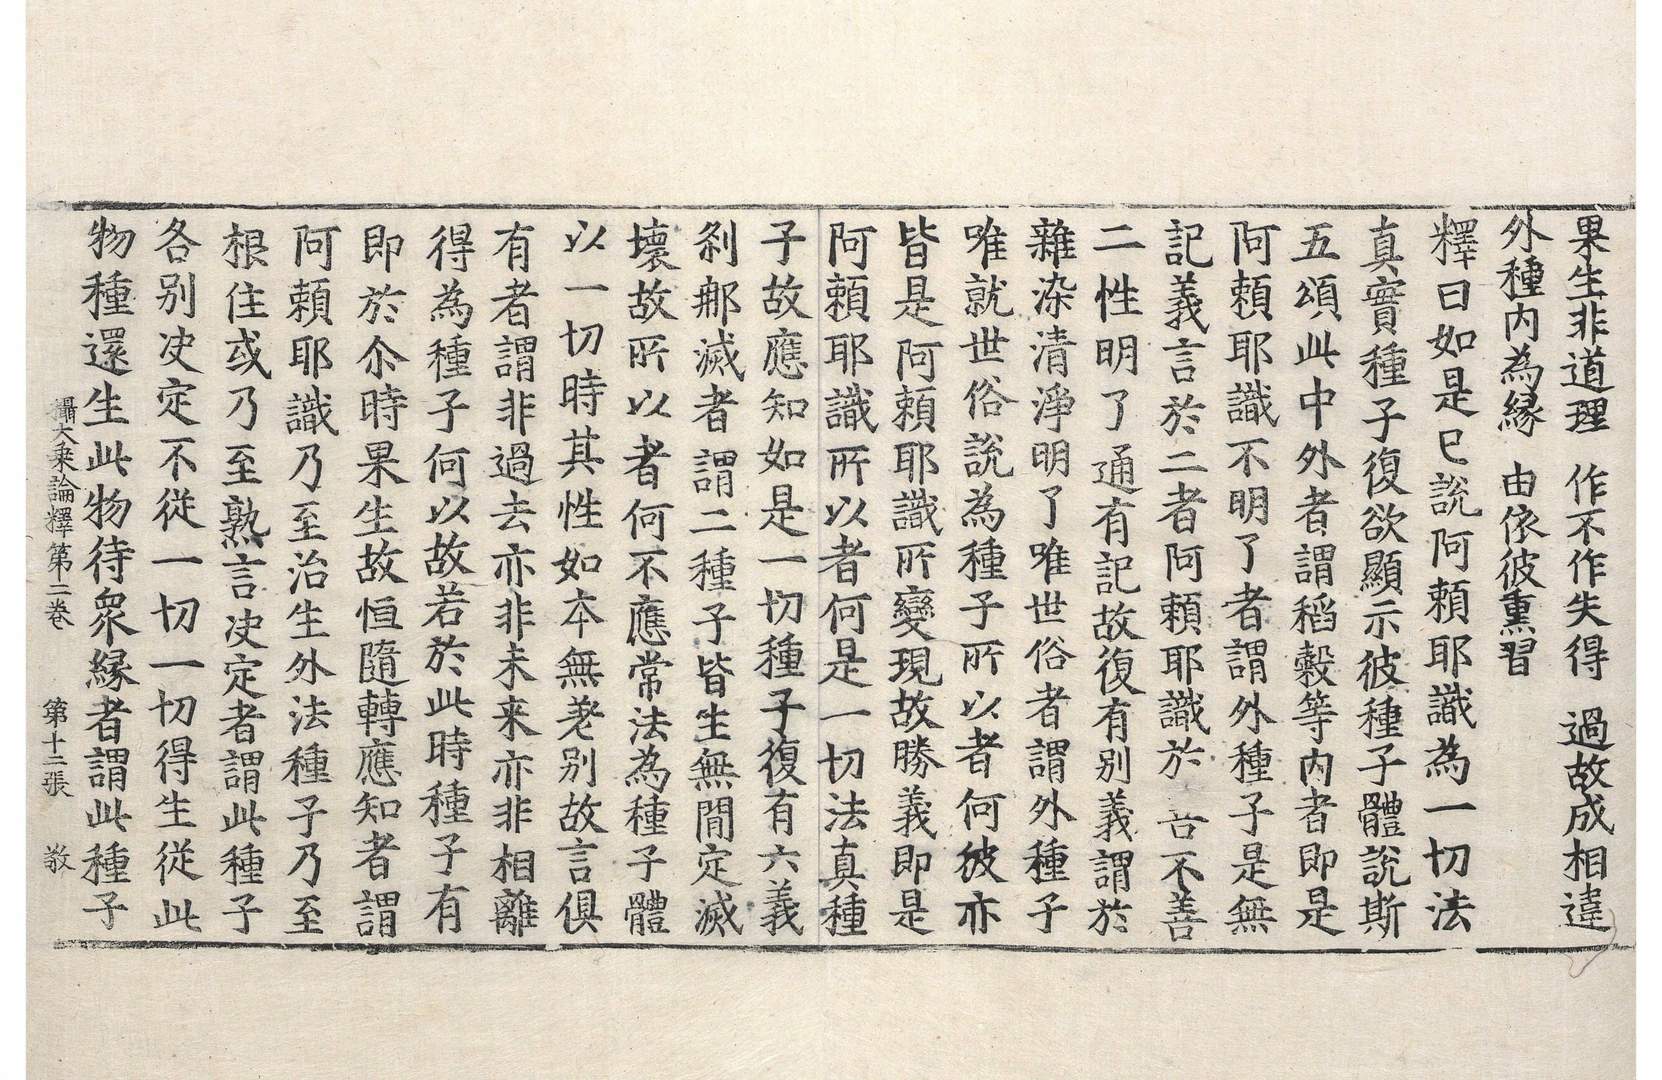 果生非道理　作不作失得　過故成相違
外種內為緣　由依彼熏習
釋曰如是已說阿賴耶識為一切法
真實種子復欲顯示彼種子體說斯
五頌此中外者謂稻縠等內者即是
阿賴耶識不明了者謂外種子是無
記義言於二者阿賴耶識於　不善
二性明了通有記故復有別義謂於
雜染清淨明了唯世俗者謂外種子
唯就世俗說為種子所以者何彼亦
皆是阿賴耶識所變現故勝義即是
阿賴耶識所以者何是一切法真種
子故應知如是一切種子復有六義
剎那滅者謂二種子皆生無間定滅
壞故所以者何不應常法為種子體
以一切時其性如本無差別故言俱
有者謂非過去亦非未来亦非相離
得為種子何以故若於此時種子有
即於尒時果生故恒隨轉應知者謂
阿賴耶識乃至治生外法種子乃至
根住或乃至熟言決定者謂此種子
各別決定不從一切一切得生從此
物種還生此物待衆緣者謂此種子
攝大乘論釋第二卷　第十二張　敬